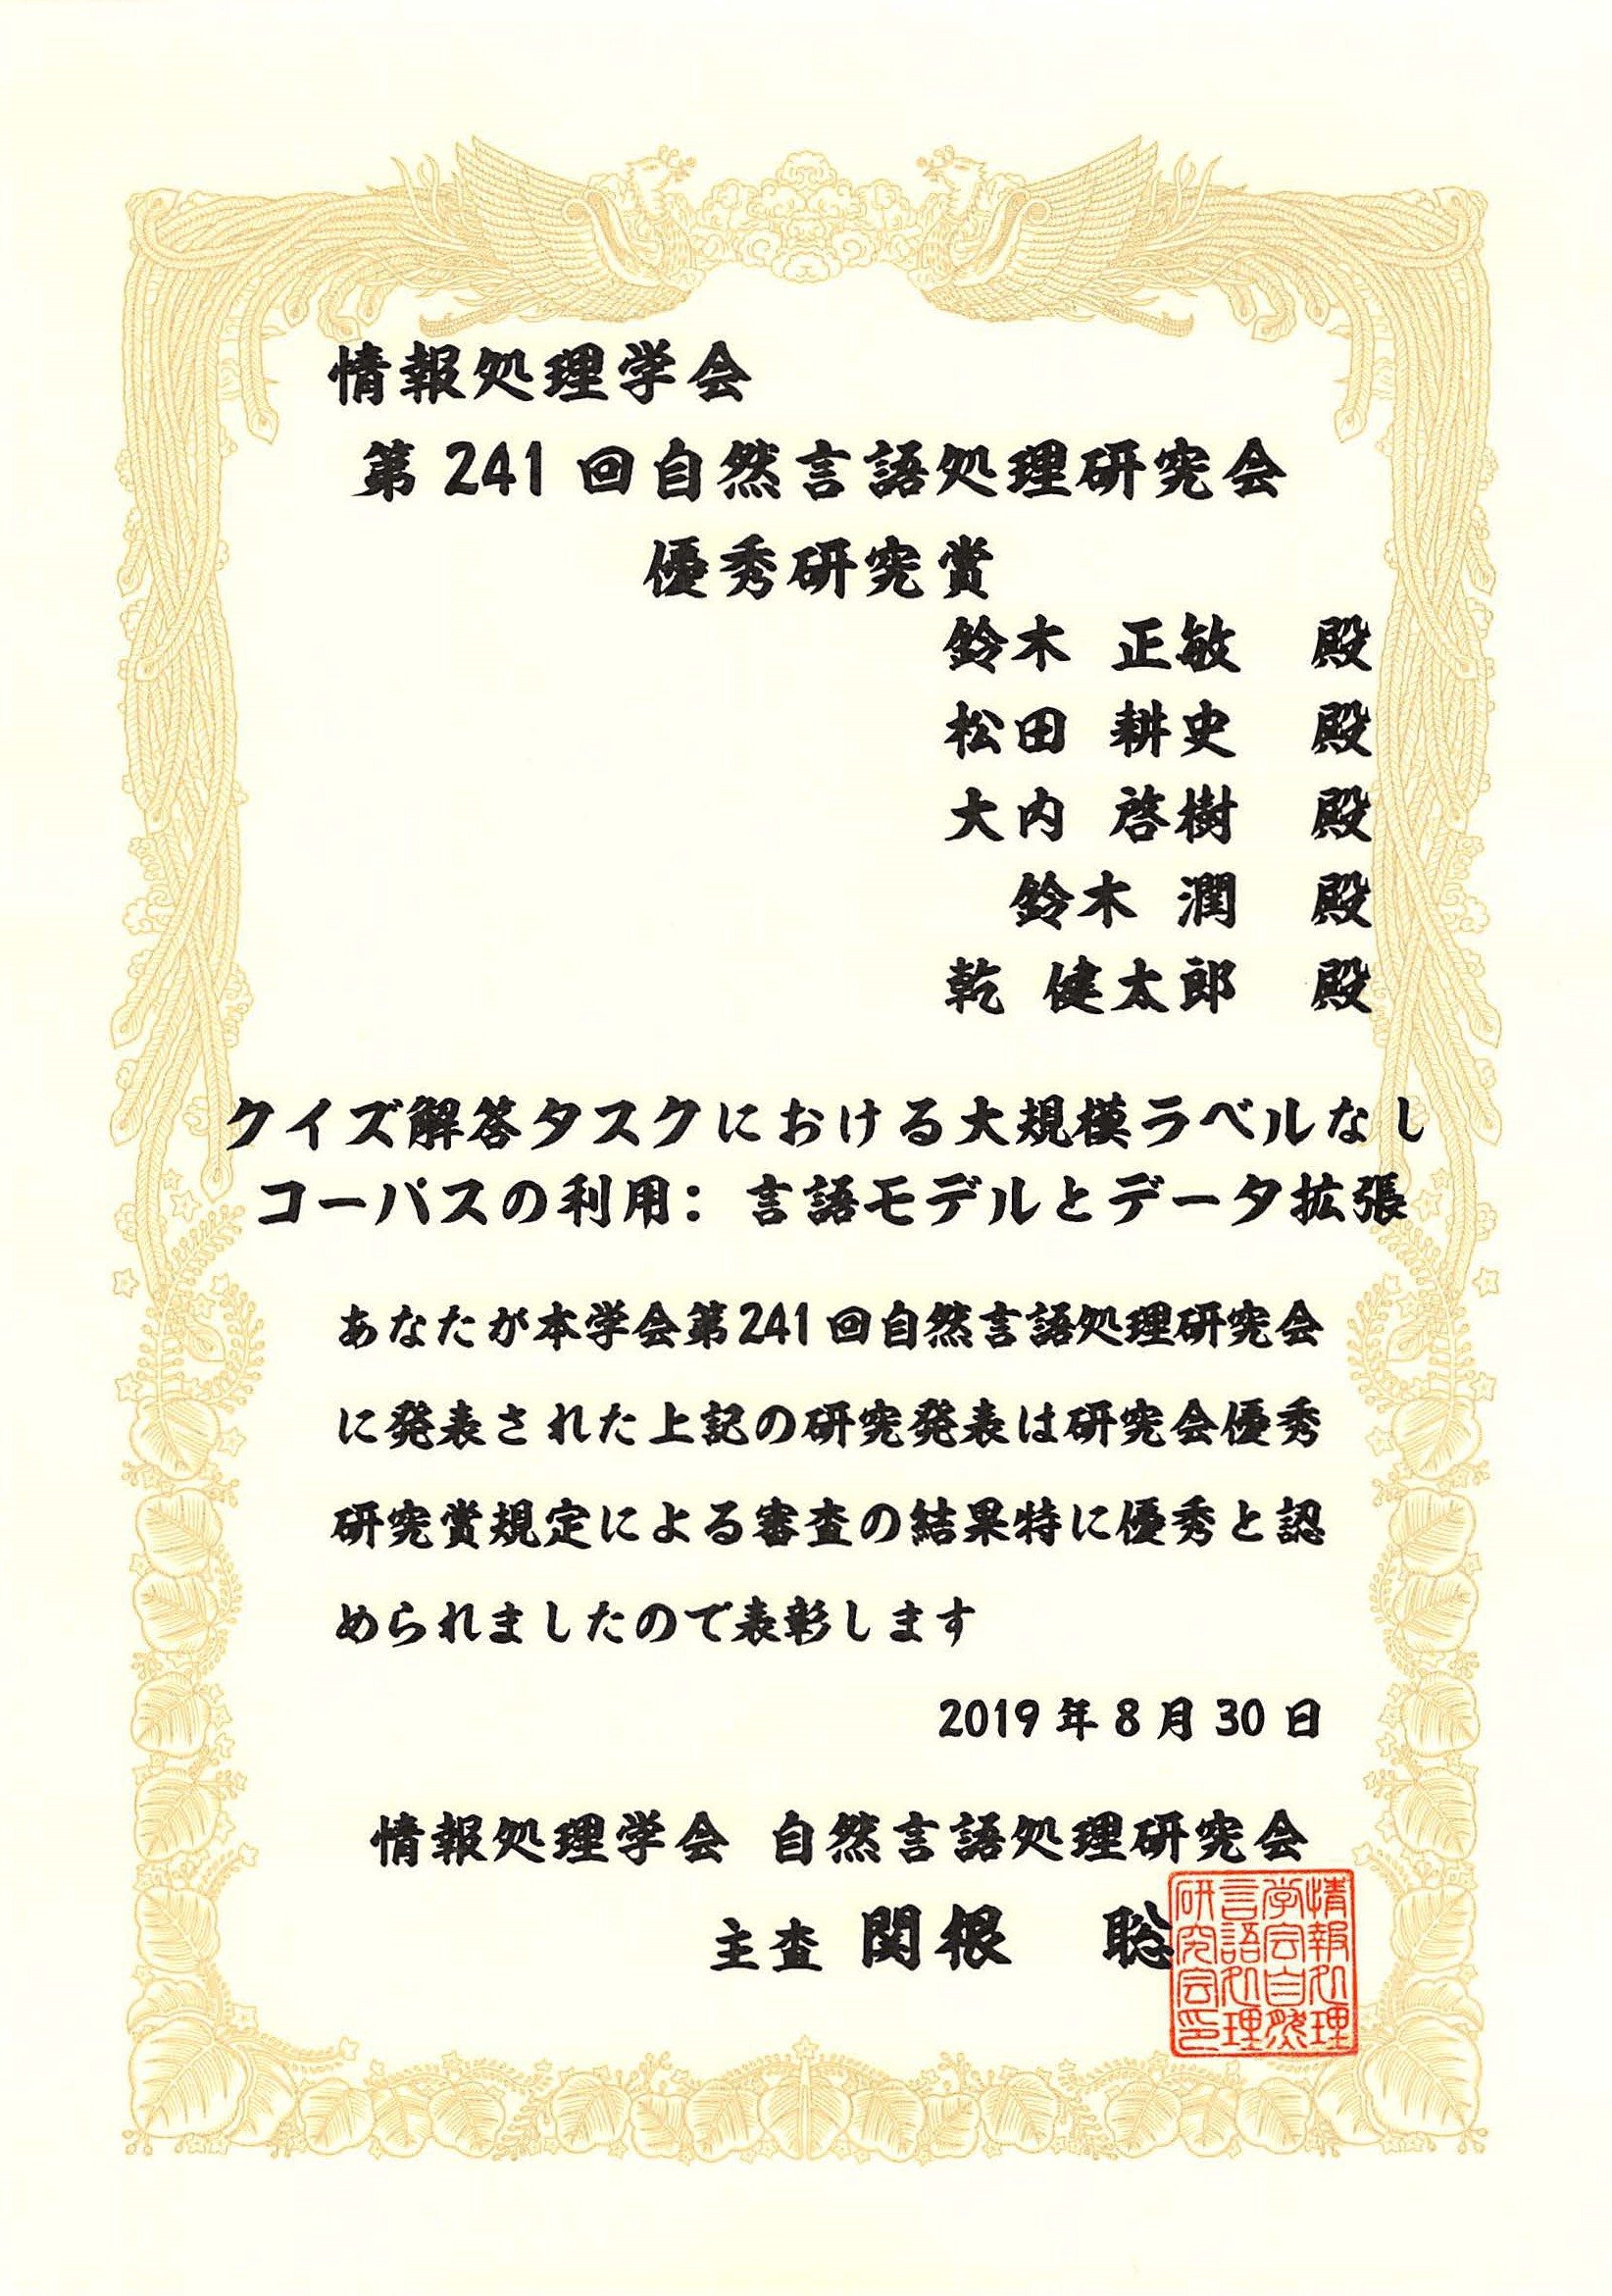 情報処理学会
第241回自然言語処理研究会
優秀研究賞
鈴木 正敏 殿
松田 耕史 殿
大内 啓樹 殿
鈴木 潤 殿
乾 健太郎 殿
クイズ解答タスクにおける大規模ラベルなし
コーパスの利用: 言語モデルとデータ拡張
あなたが本学会第241回自然言語処理研究会
に発表された上記の研究発表は研究会優秀
研究賞規定による審査の結果特に優秀と認
められましたので表彰します
2019年8月30日
情報処理学会 自然言語処理研究会
主査 関根 聡
情報処理
学会自然
言語処理
研究会印